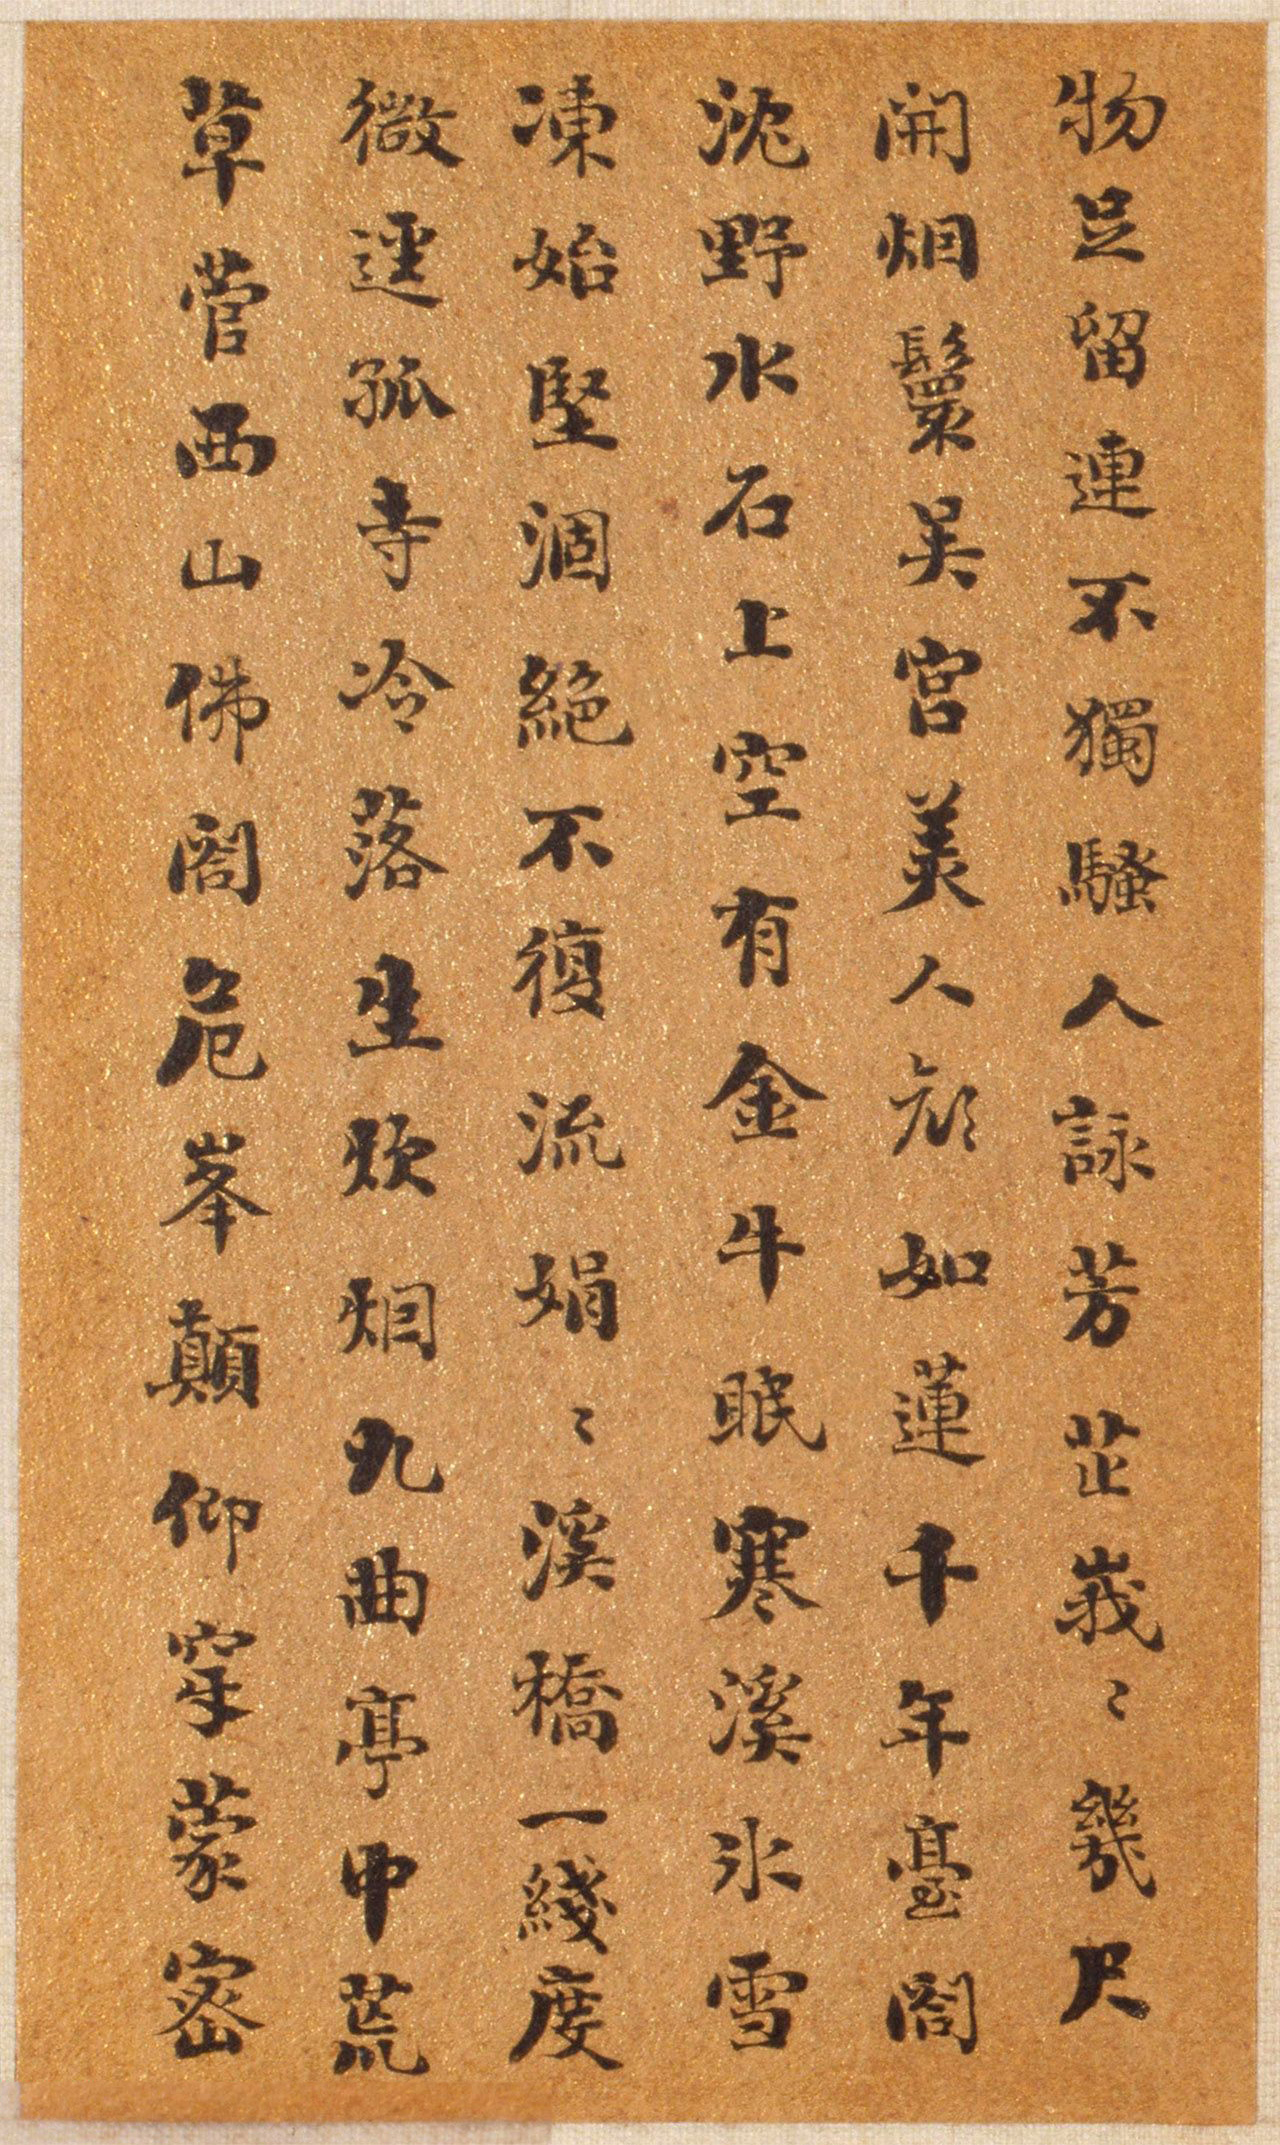 物足留連不獨騷人詠芳芷峩〻幾尺
開烟鬟吴宮美人顔如蓮千年臺閣
沈野水石上空有金牛眠寒溪氷雪
凍始堅涸絕不復流娟〻溪橋一綫度
微逕孤寺冷落生炊烟九曲亭中荒
草菅西山佛閣危峯顛仰穿蒙密